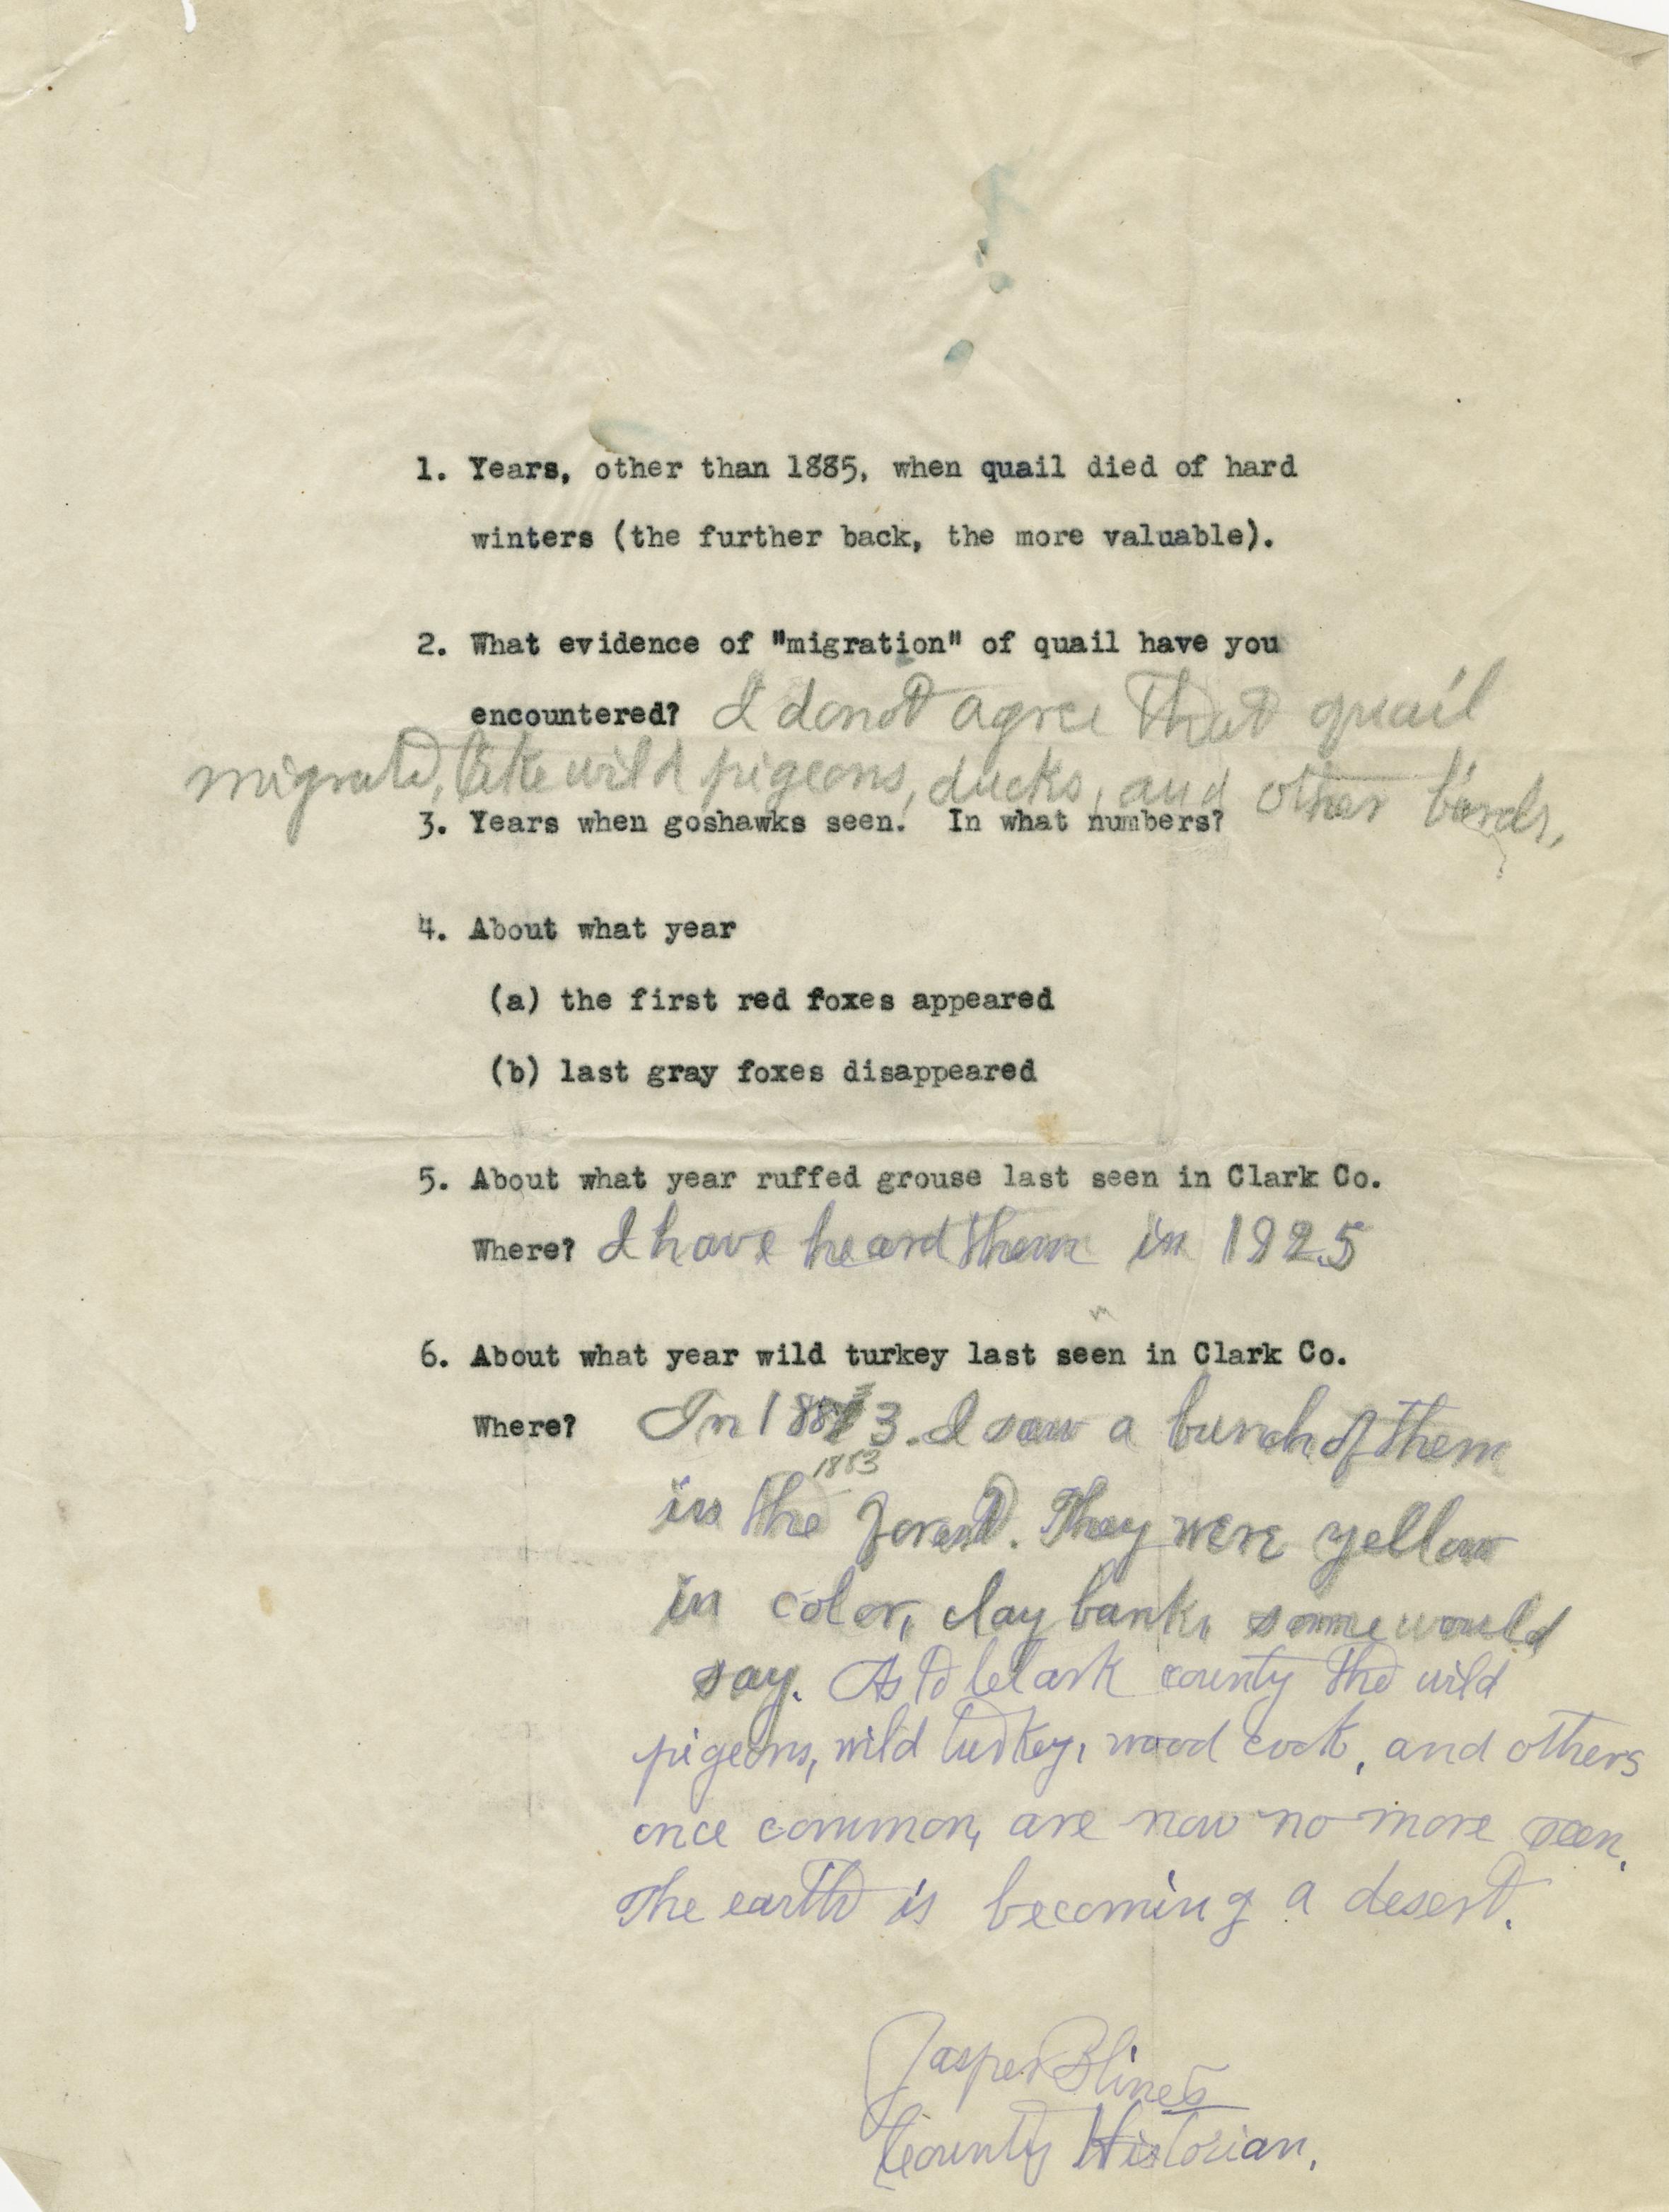 1. Years, other than 1885, when quail died of hard
winters (the further back, the more valuable).
2. What evidence of "migration" of quail have you
encountered? I do not agree that quail
migrate, like wild pigeons, ducks, and other birds,
3. Years when goshawks seen. In what numbers?
4. About what year
(a) the first red foxes appeared
(b) last gray foxes disappeared
5. About what year ruffed grouse last seen in Clark Co.
Where? I have heard them in 1925
6. About what year wild turkey last seen in Clark Co.
Where? In 1883. I saw a bunch of them
1883
in the forest. They were yellow
in color, clay bank, some would
say. As to Clark county the wild
pigeons, wild turkey, wood cock, and others
once common, are now no more seen.
The earth is becoming a desert.
Jasper Blines
County Historian.